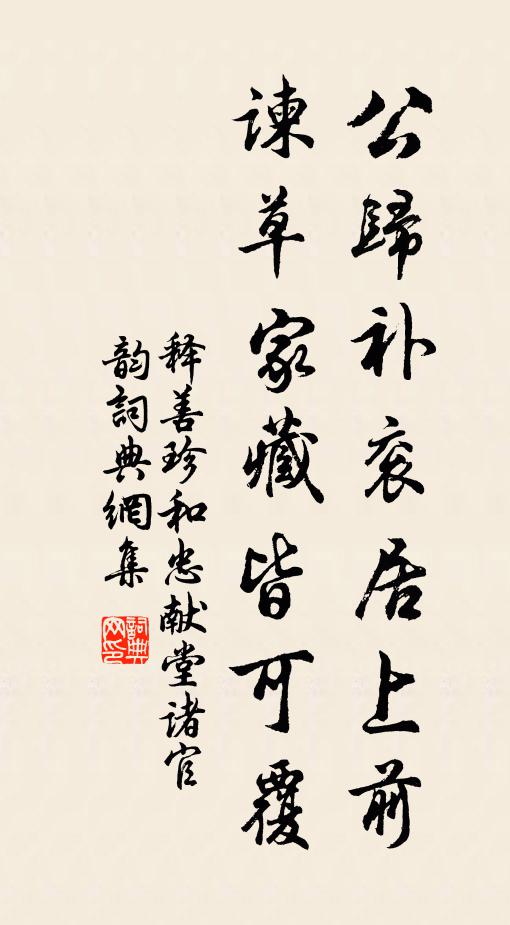 公歸补衮居上前
諫草家藏皆可覆
释善珍和忠献堂诸官
韵詞典網集
詞典网印